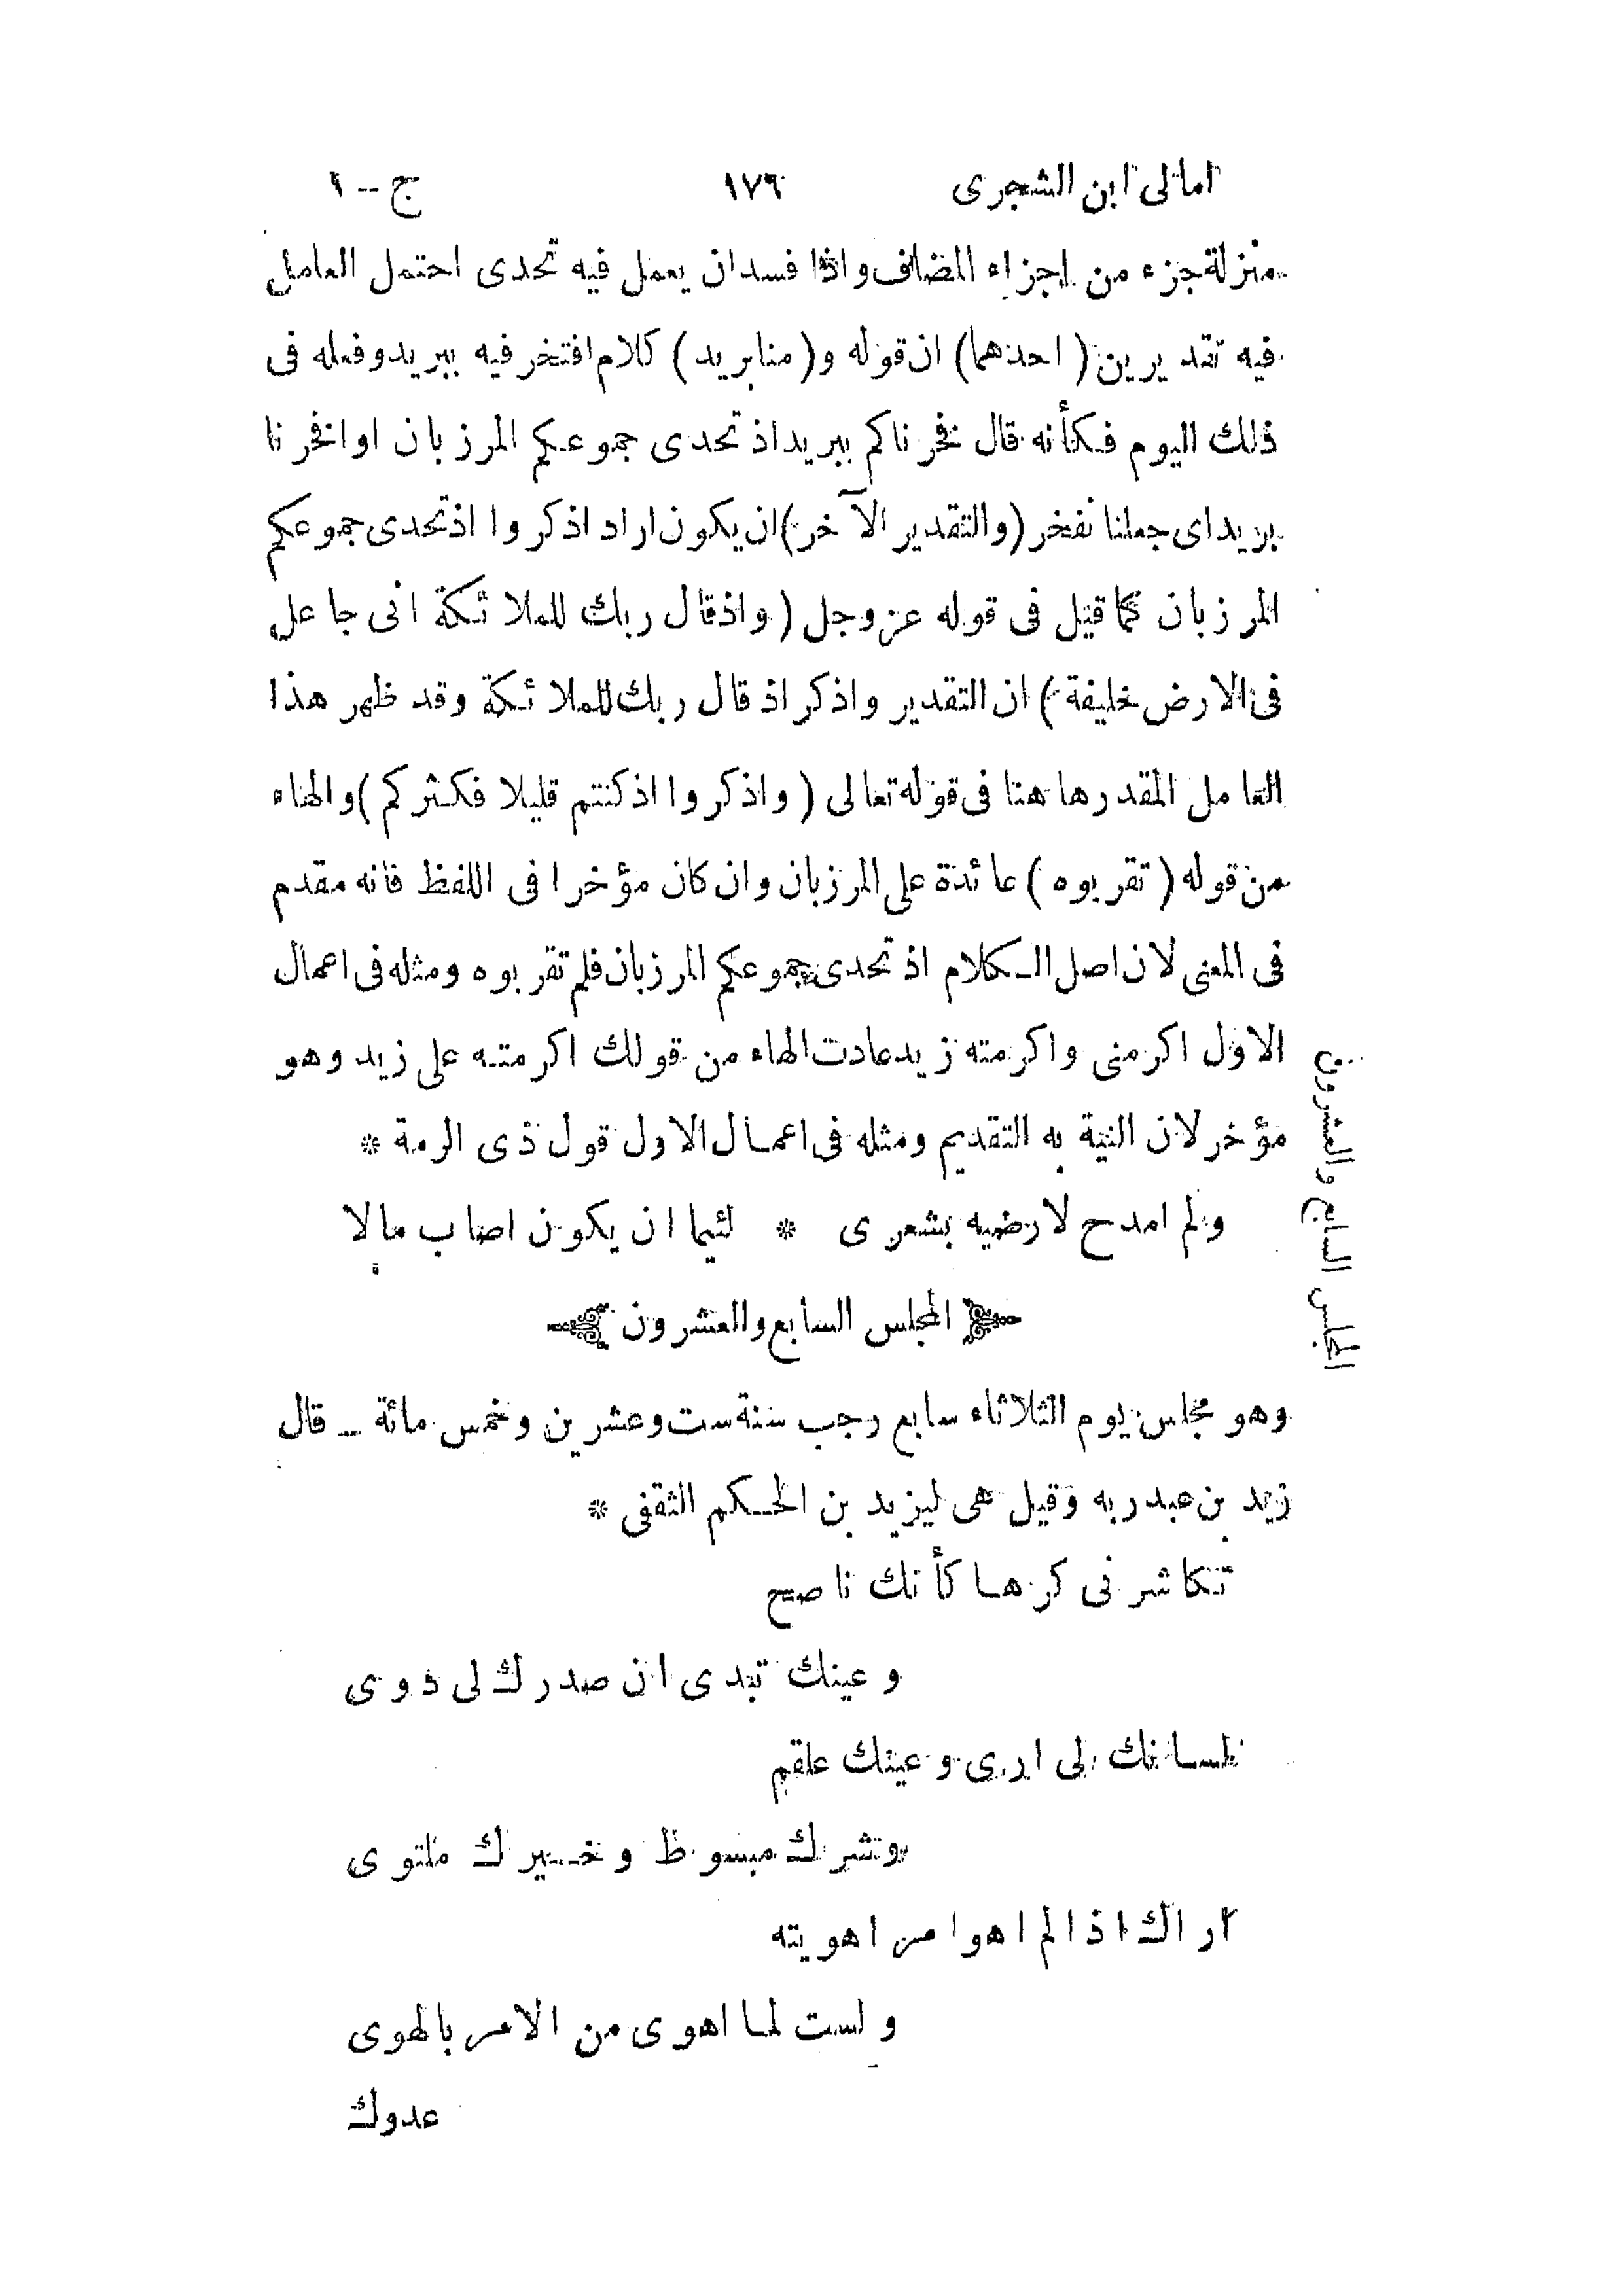 امالى ابن الشجرى ١٧٦ ج -- ١
منزلة جزء من اجزاء المضاف واذا فسد ان يعمل فيه تحدى احتمل العامل
فيه تقديرين (احدهما) ان قوله و(منا بريد) كلام افتخر فيه ببريد وفعله فى
ذلك اليوم فكأنه قال فخرناكم ببريد اذ تحدى جموعكم المرزبان او افخرنا
بريد اى جعلنا نفخر (والتقدير الآخر) ان يكون اراد اذكروا اذ تحدى جموعكم
المرزبان كما قيل فى قوله عزوجل (واذ قال ربك للملائكة انى جاعل
فى الارض خليفة) ان التقدير واذكر اذ قال ربك للملائكة وقد ظهر هذا
العامل المقدر هاهنا فى قوله تعالى (واذكروا اذ كنتم قليلا فكثركم) والهاء
من قوله (تقربوه) عائدة على المرزبان وان كان مؤخرا فى اللفظ فانه مقدم
فى المعنى لان اصل الكلام اذ تحدى جموعكم المرزبان فلم تقربوه ومثله فى اعمال
الاول اكرمنى واكرمته زيد عادت الهاء من قولك اكرمته على زيد وهو
مؤخر لان النية به التقديم ومثله فى اعمال الاول قول ذى الرمة *
ولم امدح لارضيه بشعرى * لئيما ان يكون اصاب مالا
المجلس السابع والعشرون
المجلس السابع والعشرون
وهو مجلس يوم الثلاثاء سابع رجب سنة ست وعشرين وخمس مائة ـ قال
زيد بن عبد ربه وقيل هى ليزيد بن الحكم الثقفى *
تكاشرنى كرها كأنك ناصح
وعينك تبدى ان صدرك لى دوى
لسانك لى ارى وعينك علقم
وشرك مبسوط وخيرك ملتوى
اراك اذا لم اهو امرا هويته
ولست لما اهوى من الامر بالهوى
عدوك